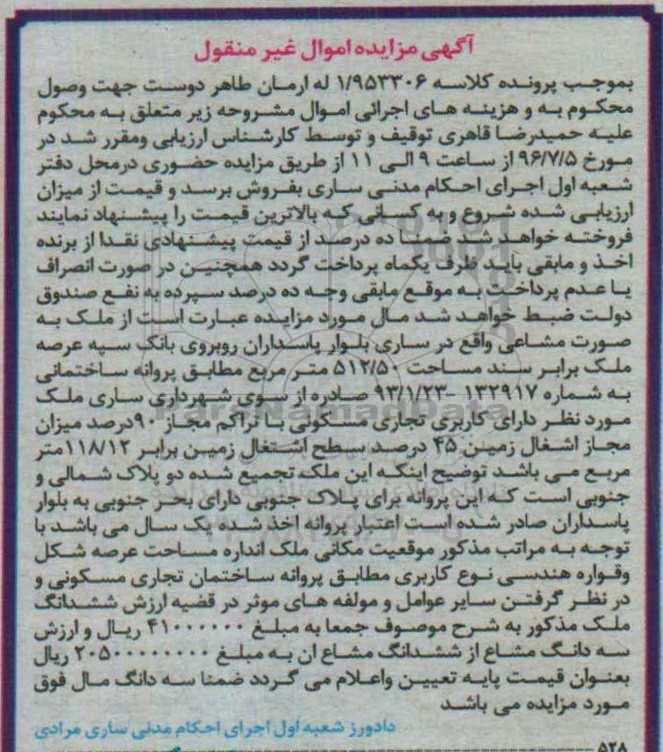 آگهی مزایده اموال غیر منقول
بموجب پرونده کلاسه ۱/۹۵۳۳۰۶ له ارمان طاهر دوست جهت وصول
محکوم به و هزینه های اجرائی اموال مشروحه زیر متعلق به محکوم
علیه حمیدرضا قاهری توقیف و توسط کارشناس ارزیابی ومقرر شد در
مورخ ۹۶/۷/۵ از ساعت ۹ الی ۱۱ از طریق مزایده حضوری درمحل دفتر
شعبه اول اجرای احکام مدنی ساری بفروش برسد و قیمت از میزان
ارزیابی شده شروع و به کسانی که بالاترین قیمت را پیشنهاد نمایند
فروخته خواهد شد ضمنا ده درصد از قیمت پیشنهادی نقدا از برنده
اخذ و مابقی باید ظرف یکماه پرداخت گردد همچنین در صورت انصراف
یا عدم پرداخت به موقع مابقی وجه ده درصد سپرده به نفع صندوق
دولت ضبط خواهد شد مال مورد مزایده عبارت است از ملک به
صورت مشاعی واقع در ساری بلوار پاسداران روبروی بانک سپه عرصه
ملک برابر سند مساحت ۵۱۲/۵۰ متر مربع مطابق پروانه ساختمانی
به شماره ۱۳۲۹۱۷ -۹۳/۱/۲۳ صادره از سوی شهرداری ساری ملک
مورد نظر دارای کاربری تجاری مسکونی با تراکم مجاز ۹۰درصد میزان
مجاز اشغال زمین ۴۵ درصد سطح اشتغال زمین برابر ۱۱۸/۱۲متر
مربع می باشد توضیح اینکه این ملک تجمیع شده دو پلاک شمالی و
جنوبی است که این پروانه برای پلاک جنوبی دارای بحر جنوبی به بلوار
پاسداران صادر شده است اعتبار پروانه اخذ شده یک سال می باشد با
توجه به مراتب مذکور موقعیت مکانی ملک اندازه مساحت عرصه شکل
وقواره هندسی نوع کاربری مطابق پروانه ساختمان تجاری مسکونی و
در نظر گرفتن سایر عوامل و مولفه های موثر در قضیه ارزش ششدانگ
ملک مذکور به شرح موصوف جمعا به مبلغ ۴۱۰۰۰۰۰۰ ریال و ارزش
سه دانگ مشاع از ششدانگ مشاع ان به مبلغ ۲۰۵۰۰۰۰۰۰۰۰ ریال
بعنوان قیمت پایه تعیین واعلام می گردد ضمنا سه دانگ مال فوق
مورد مزایده می باشد
دادورز شعبه اول اجرای احکام مدنی ساری مرادی
۵۲۸
ParsNamadData